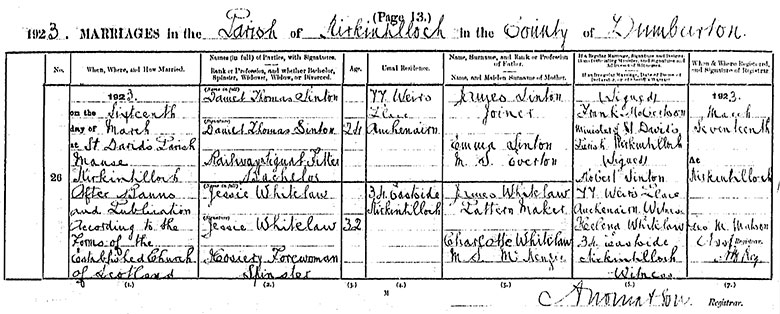 (Page 13.)
1923. MARRIAGES in the Parish of Kirkintilloch in the County of Dumbarton.
No.
When, Where, and How Married.
Names (in full) of Parties, with Signatures.
Rank or Profession, and whether Bachelor, Spinster, Widower, Widow, or Divorced.
Age.
Usual Residence.
Name, Surname, and Rank or Profession of Father.
Name, and Maiden Surname of Mother.
If a Regular Marriage, Signature and
of Officiating Minister, and Signatures and Addresses of Witnesses.
If an Irregular Marriage, Date of
When & Where Registered, and Signature of Registrar.
26
1923.
on the Sixteenth
day of March
at St David's Parish
Manse
Kirkintilloch
After Banns
and Publication
According to the
Forms of the
Established Church
of Scotland
(Name in full)
Daniel Thomas Sinton
(Signature)
Daniel Thomas Sinton
Railway Signal Fitter
Bachelor
(Name in full)
Jessie Whitelaw
(Signature)
Jessie Whitelaw
Hosiery Forewoman
Spinster
24
32
77 Weirs
Place
Auchenairn
34 Eastside
Kirkintilloch
James Sinton
Joiner
Emma Sinton
M. S. Everton
James Whitelaw
Pattern Maker
Charlotte Whitelaw
M. S. McKenzie
(Signed)
Frank
Minister of St David's
Parish Kirkintilloch
(Signed)
Robert Sinton
77 Weirs Place
Auchenairn Witness
Helena Whitelaw
34 Eastside
Kirkintilloch
Witness
1923.
March
Seventeenth
at
Kirkintilloch
M.
Asst Registrar.
(1.) (2.) (3.) (4.) (5.) (6.) (7.)
M
Registrar.